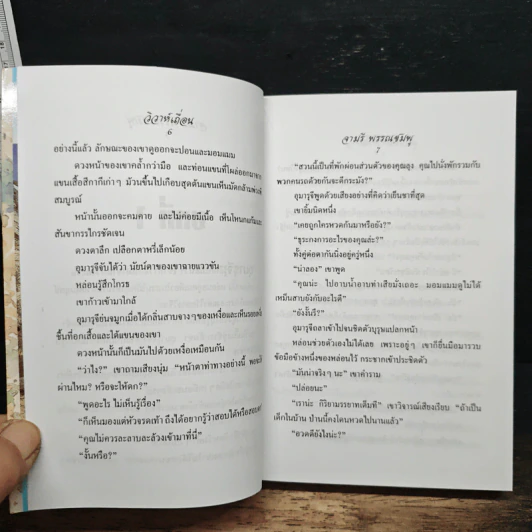 วิวาห์เถื่อน
6
อย่างนี้แล้ว ลักษณะของเขาดูออกจะปอนและมอมแมม
ดวงหน้าของเขาคล้ำกว่ามือ และท่อนแขนที่โผล่ออกมาจาก
แขนเสื้อสีกากีเก่าๆ ม้วนขึ้นไปเกือบสุดต้นแขนเห็นมัดกล้าม
สมบูรณ์
หน้านั้นออกจะคมคาย และไม่ค่อยมีเนื้อ เห็นโหนกแก้มและ
สันขากรรไกรชัดเจน
ดวงตาลึก เปลือกตาหรี่เล็กน้อย
อุมารุจีจับได้ว่า นัยน์ตาของเขาฉายแววขัน
หล่อนรู้สึกโกรธ
เขาก้าวเข้ามาใกล้
อุมารุจีย่นจมูกเมื่อได้กลิ่นสาบจางๆของเหงื่อและเห็นรอย
ชื้นที่อกเสื้อและใต้แขนของเขา
ดวงหน้านั้นก็เป็นมันไปด้วยเหงื่อเหมือนกัน
“ว่าไง?” เขาถามเสียงนุ่ม “หน้าตาท่าทางอย่างนี้ พอจะ
ผ่านไหม? หรือจะให้ตก?”
“พูดอะไร ไม่เห็นรู้เรื่อง”
“ก็เห็นมองแต่หัวจรดเท้า ถึงได้อยากรู้ว่าสอบได้หรือสอบตก”
“คุณไม่ควรละลาบละล้วงเข้ามาที่นี่”
“งั้นหรือ?”
จามรี พรรณชมพู
7
“สวนนี้เป็นที่พักผ่อนส่วนตัวของคุณลุง คุณไปนั่งพักรวมกับ
พวกคนรถด้วยกันจะดีกระมัง?”
อุมารุจีพูดด้วยเสียงอย่างที่คิดว่าเย็นชาที่สุด
เขายิ้มนิดหนึ่ง
“เคยถูกใครหวดก้นมาหรือยัง?”
“ธุระกงการอะไรของคุณล่ะ?”
ทั้งคู่ต่อตากันนิ่งอยู่ครู่หนึ่ง
“น่าลอง” เขาพูด
“คุณน่ะ ไปอาบน้ำอาบท่าเสียมั่งเถอะ มอมแมมดูไม่ได้
เหม็นสาบยังกับอะไรดี”
“ยังงั้นรึ?”
อุมารุจีถลาเข้าไปจนชิดตัวบุรุษแปลกหน้า
หล่อนช่วยตัวเองไม่ได้เลย เพราะอยู่ๆ เขาก็ยื่นมือมารวบ
ข้อมือข้างหนึ่งของหล่อนไว้ กระชากเข้าประชิดตัว
“มันน่าจริงๆ นะ” เขาคำราม
“ปล่อยนะ”
“เราน่ะ กิริยามรรยาทเต็มที” เขาวิจารณ์เสียงเรียบ “ถ้าเป็น
เด็กในบ้าน ป่านนี้คงโดนหวดไปนานแล้ว”
“อวดดียังไงน่ะ?”